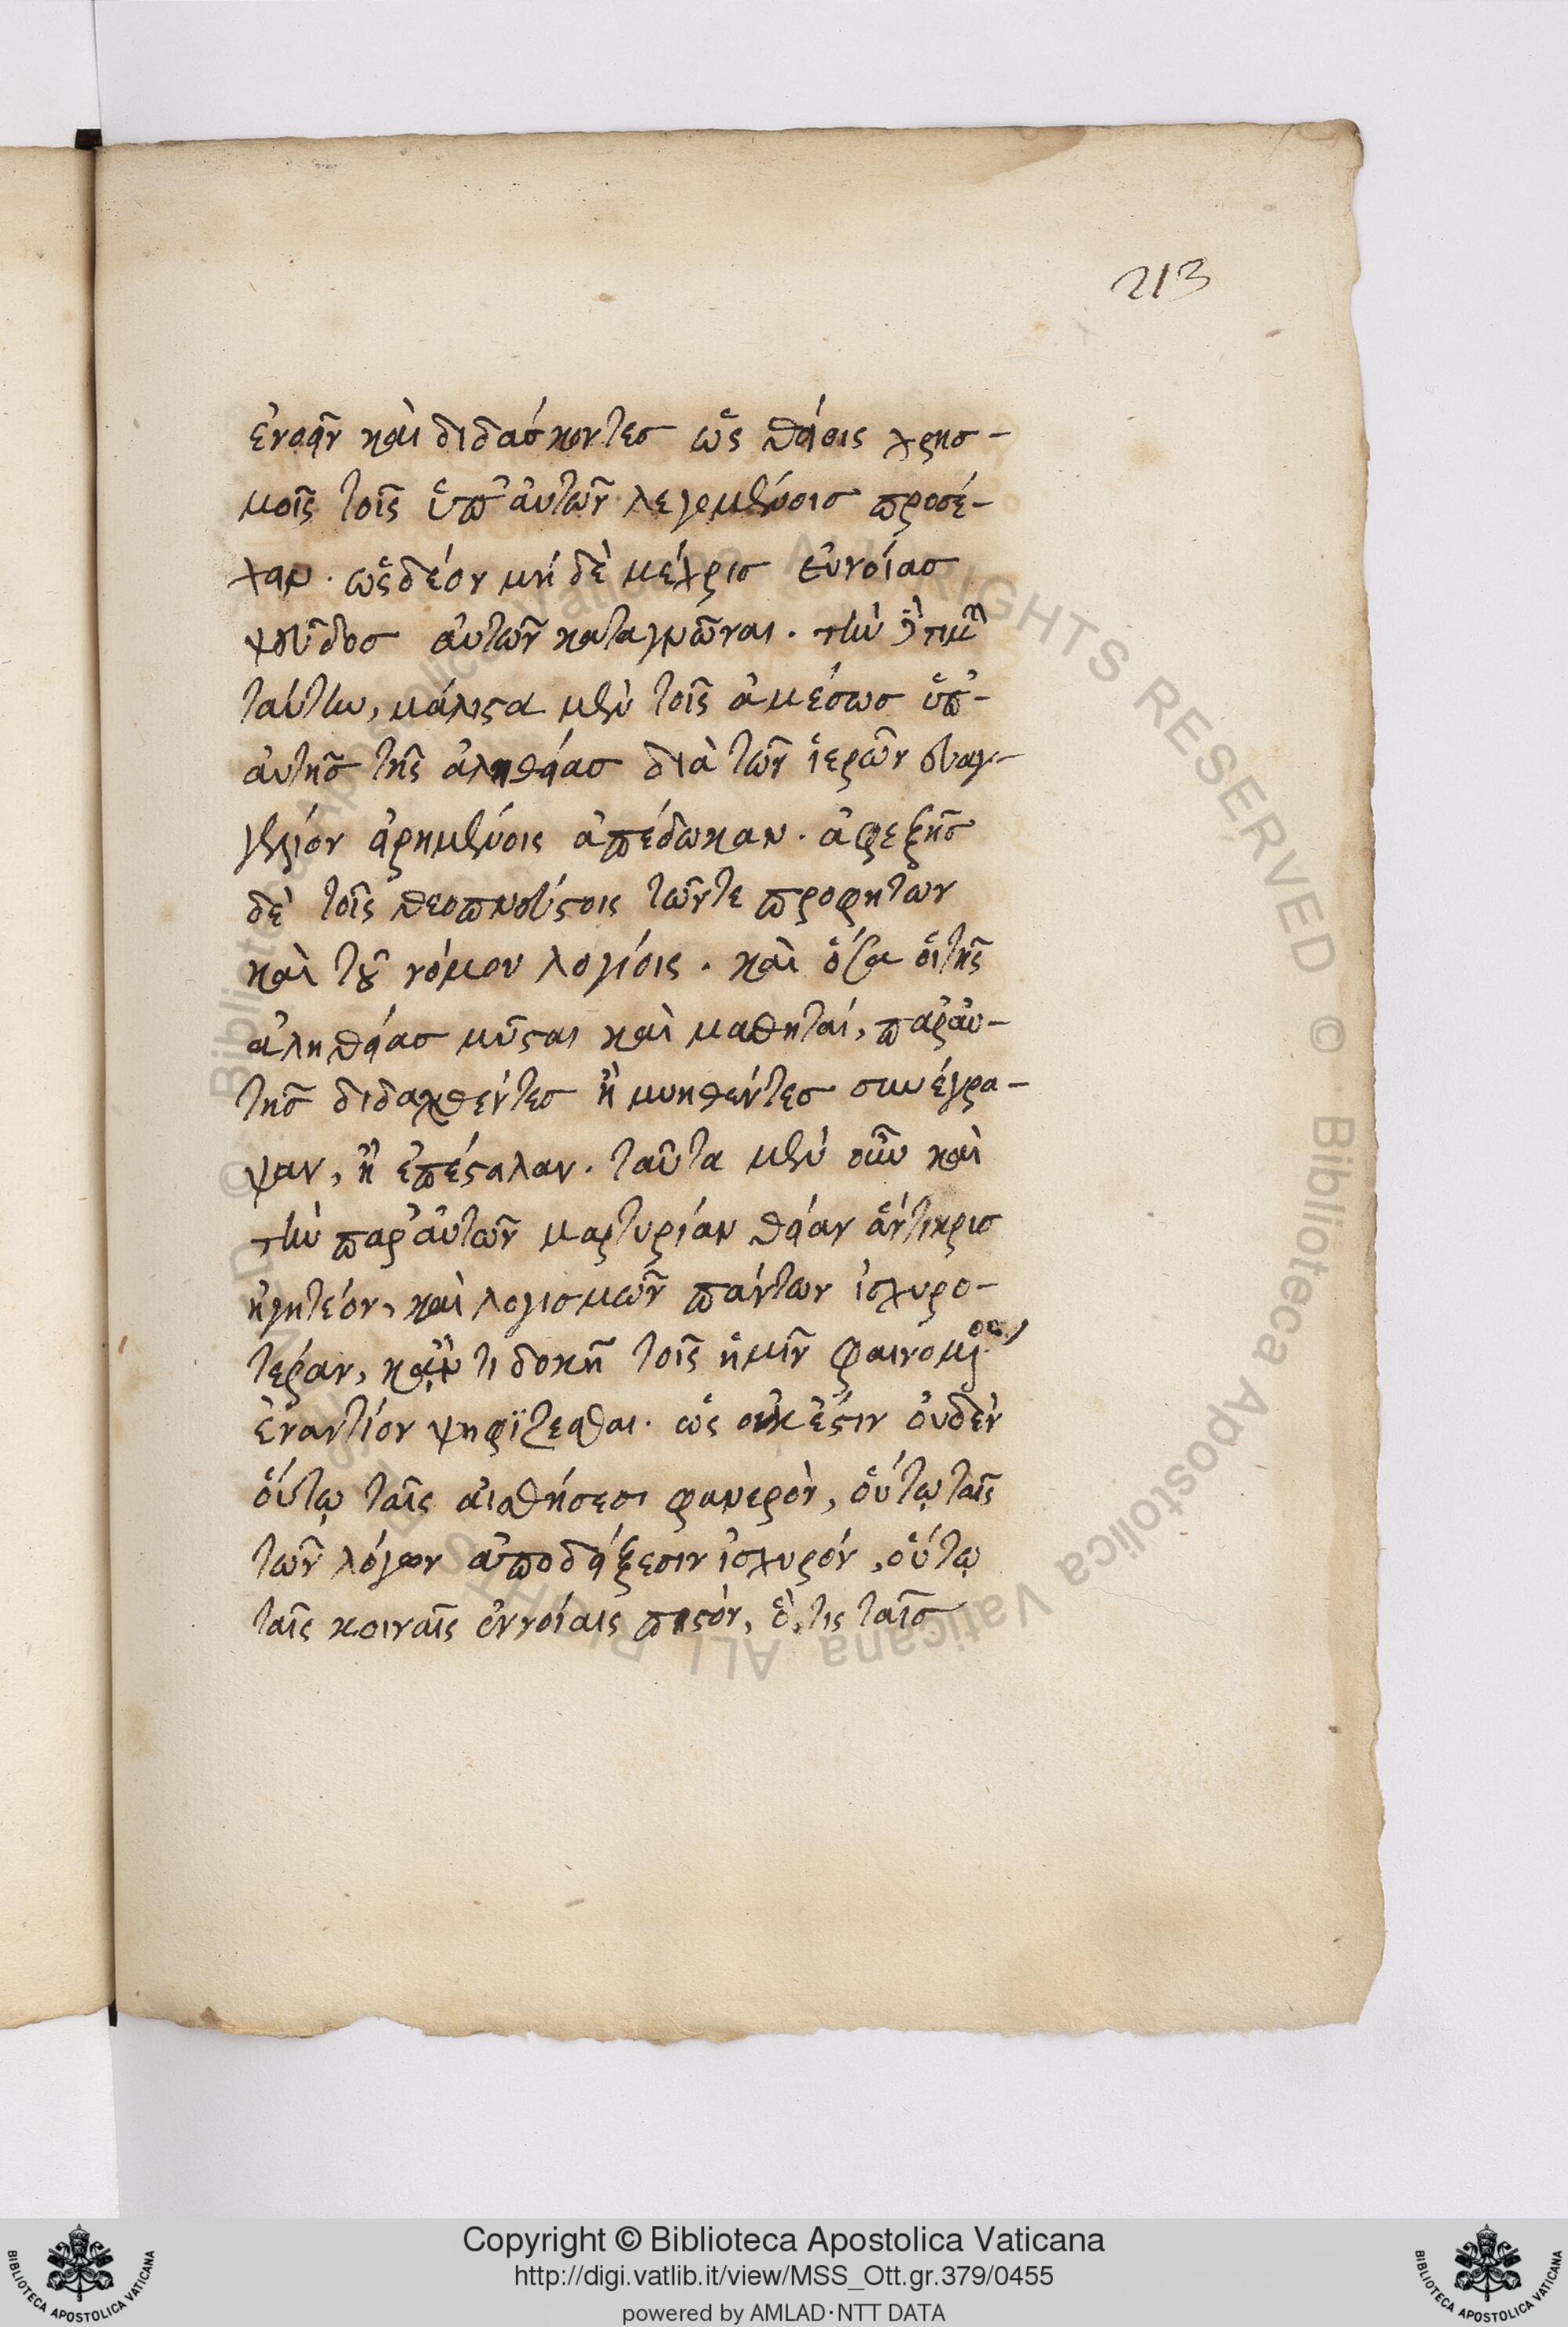 213
ἐνοσεῖν καὶ διδάσκοντες ὡς θείοις χρησ-
μοῖς τοῖς ὑπ' αὐτῶν λεγομένοις προσέ-
χειν. ὡς δέον μὴ δὲ μέχρις εὐνοίας
ψεῦδος αὐτῶν καταγνῶναι. τὴν
ταύτην, μάλιστα μὲν τοῖς ἀμέσως ὑπ'
αὐτῆς τῆς ἀληθείας διὰ τῶν ἱερῶν εὐαγ-
γελίων εἰρημένοις ἀπέδωκαν. ἀφεξῆς
δὲ τοῖς θεοπνεύστοις τῶν τε προφητῶν
καὶ τοῦ νόμου λογίοις. καὶ ὅσα οἱ τῆς
ἀληθείας μύσται καὶ μαθηταί, παρ' αὐ-
τῆς διδαχθέντες ἢ μυηθέντες συνέγρα-
ψαν, ἢ ἐπέσταλαν. ταῦτα μὲν οὖν καὶ
τὴν παρ' αὐτῶν μαρτυρίαν θείαν ἄντικρις
ἡγητέον, καὶ λογισμῶν πάντων ἰσχυρο-
τέραν, κἄν τι δοκῇ τοῖς ἡμῖν φαινομένοις
ἐναντίον ψηφίζεσθαι. ὡς οὐκ ἔστιν οὐδὲν
οὕτω ταῖς αἰσθήσεσι φανερὸν, οὕτω ταῖς
τῶν λόγων ἀποδείξεσιν ἰσχυρόν, οὕτω
ταῖς κοιναῖς ἐννοίαις πιστόν, ὅ, τις ταῖς
Copyright © Biblioteca Apostolica Vaticana
http://digi.vatlib.it/view/MSS_Ott.gr.379/0455
powered by AMLAD·NTT DATA
BIBLIOTECA APOSTOLICA VATICANA
BIBLIOTECA APOSTOLICA VATICANA
© Biblioteca Apostolica Vaticana ALL RIGHTS RESERVED © Biblioteca Apostolica Vaticana ALL RIGHTS RESERVED